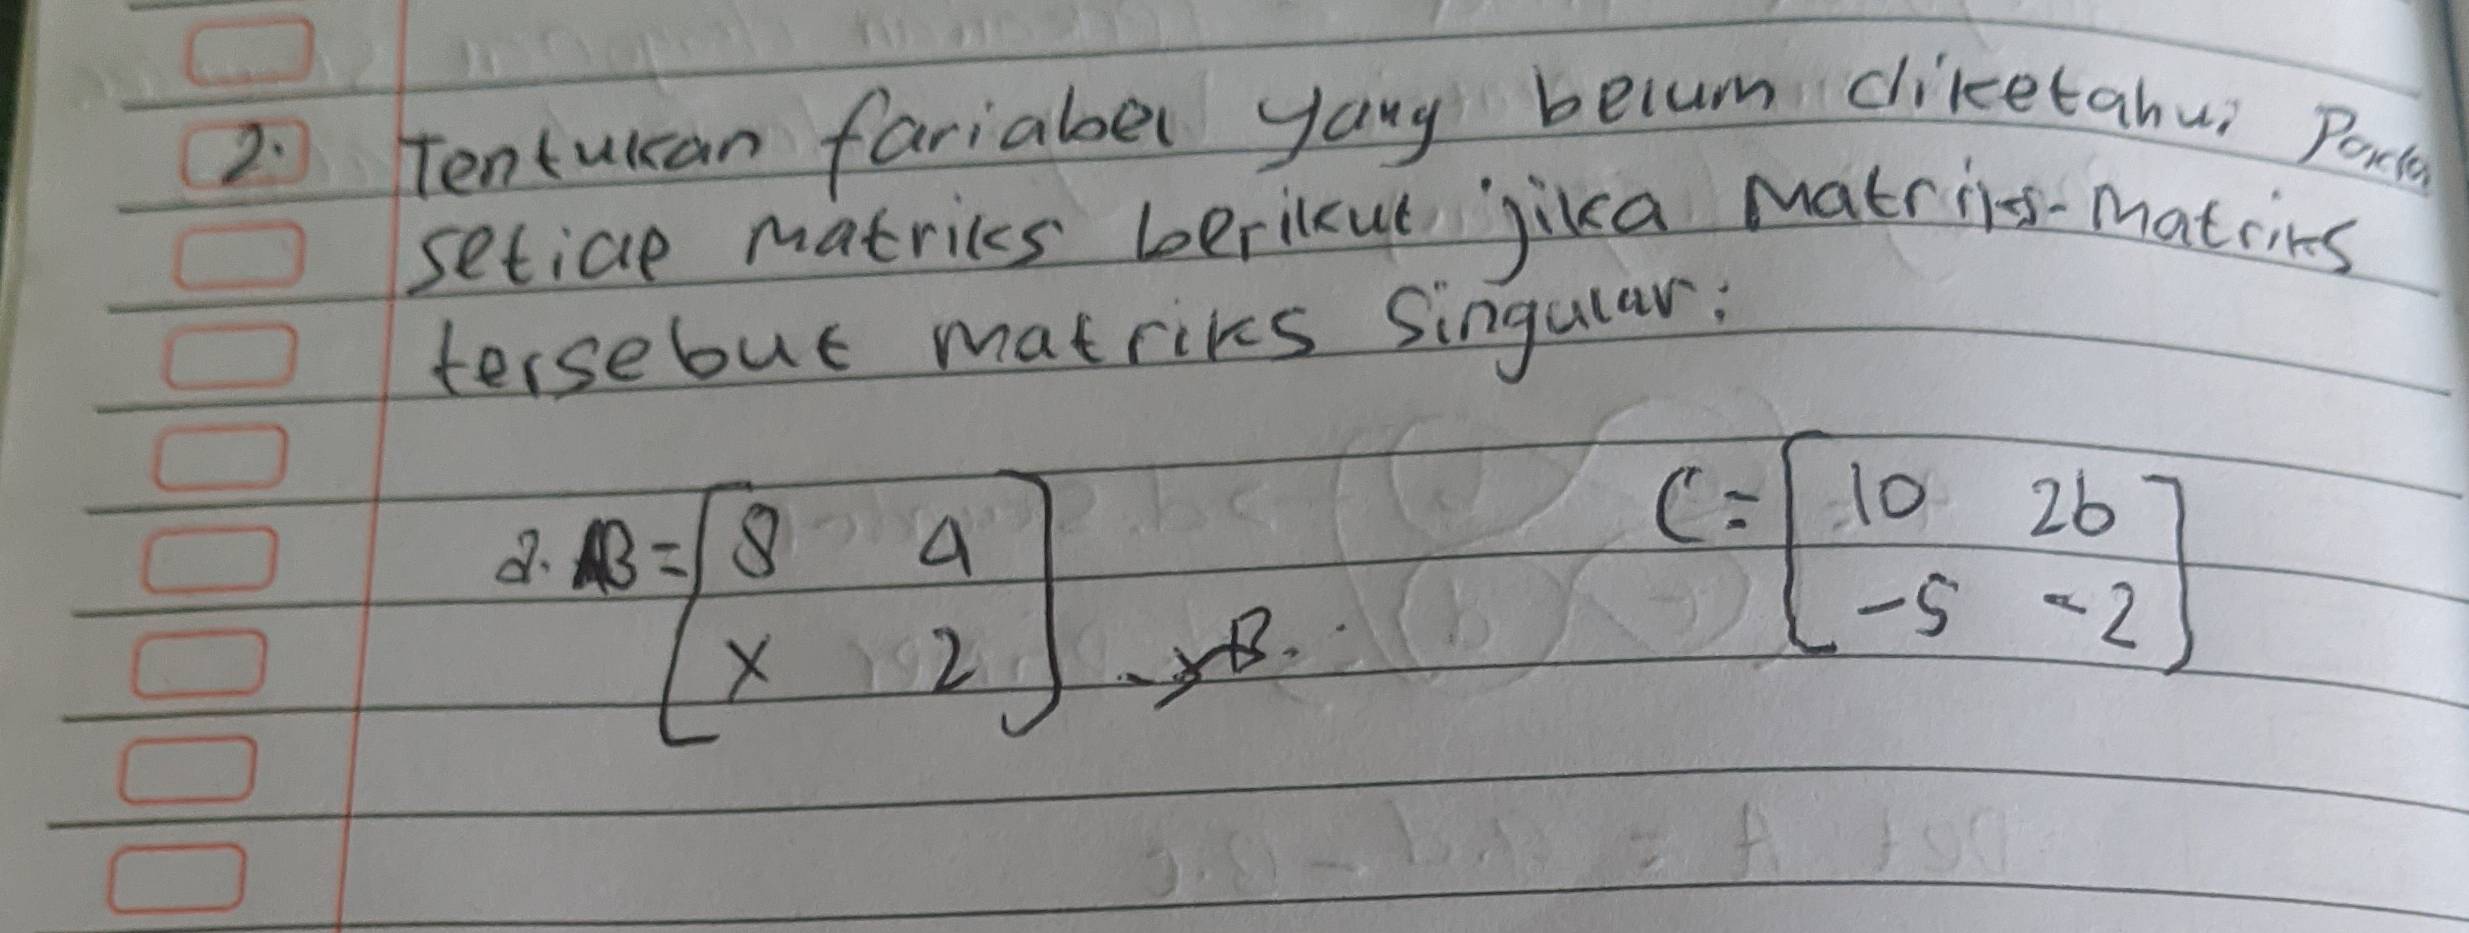 2. Tentukan fariabel yang belum diketahui Pada
setiap matriks berikut jika Matriks-Matriks
tersebut matriks Singular:
a. AB = [8 4
x 2] → B.
C = [10 2b
-5 -2]